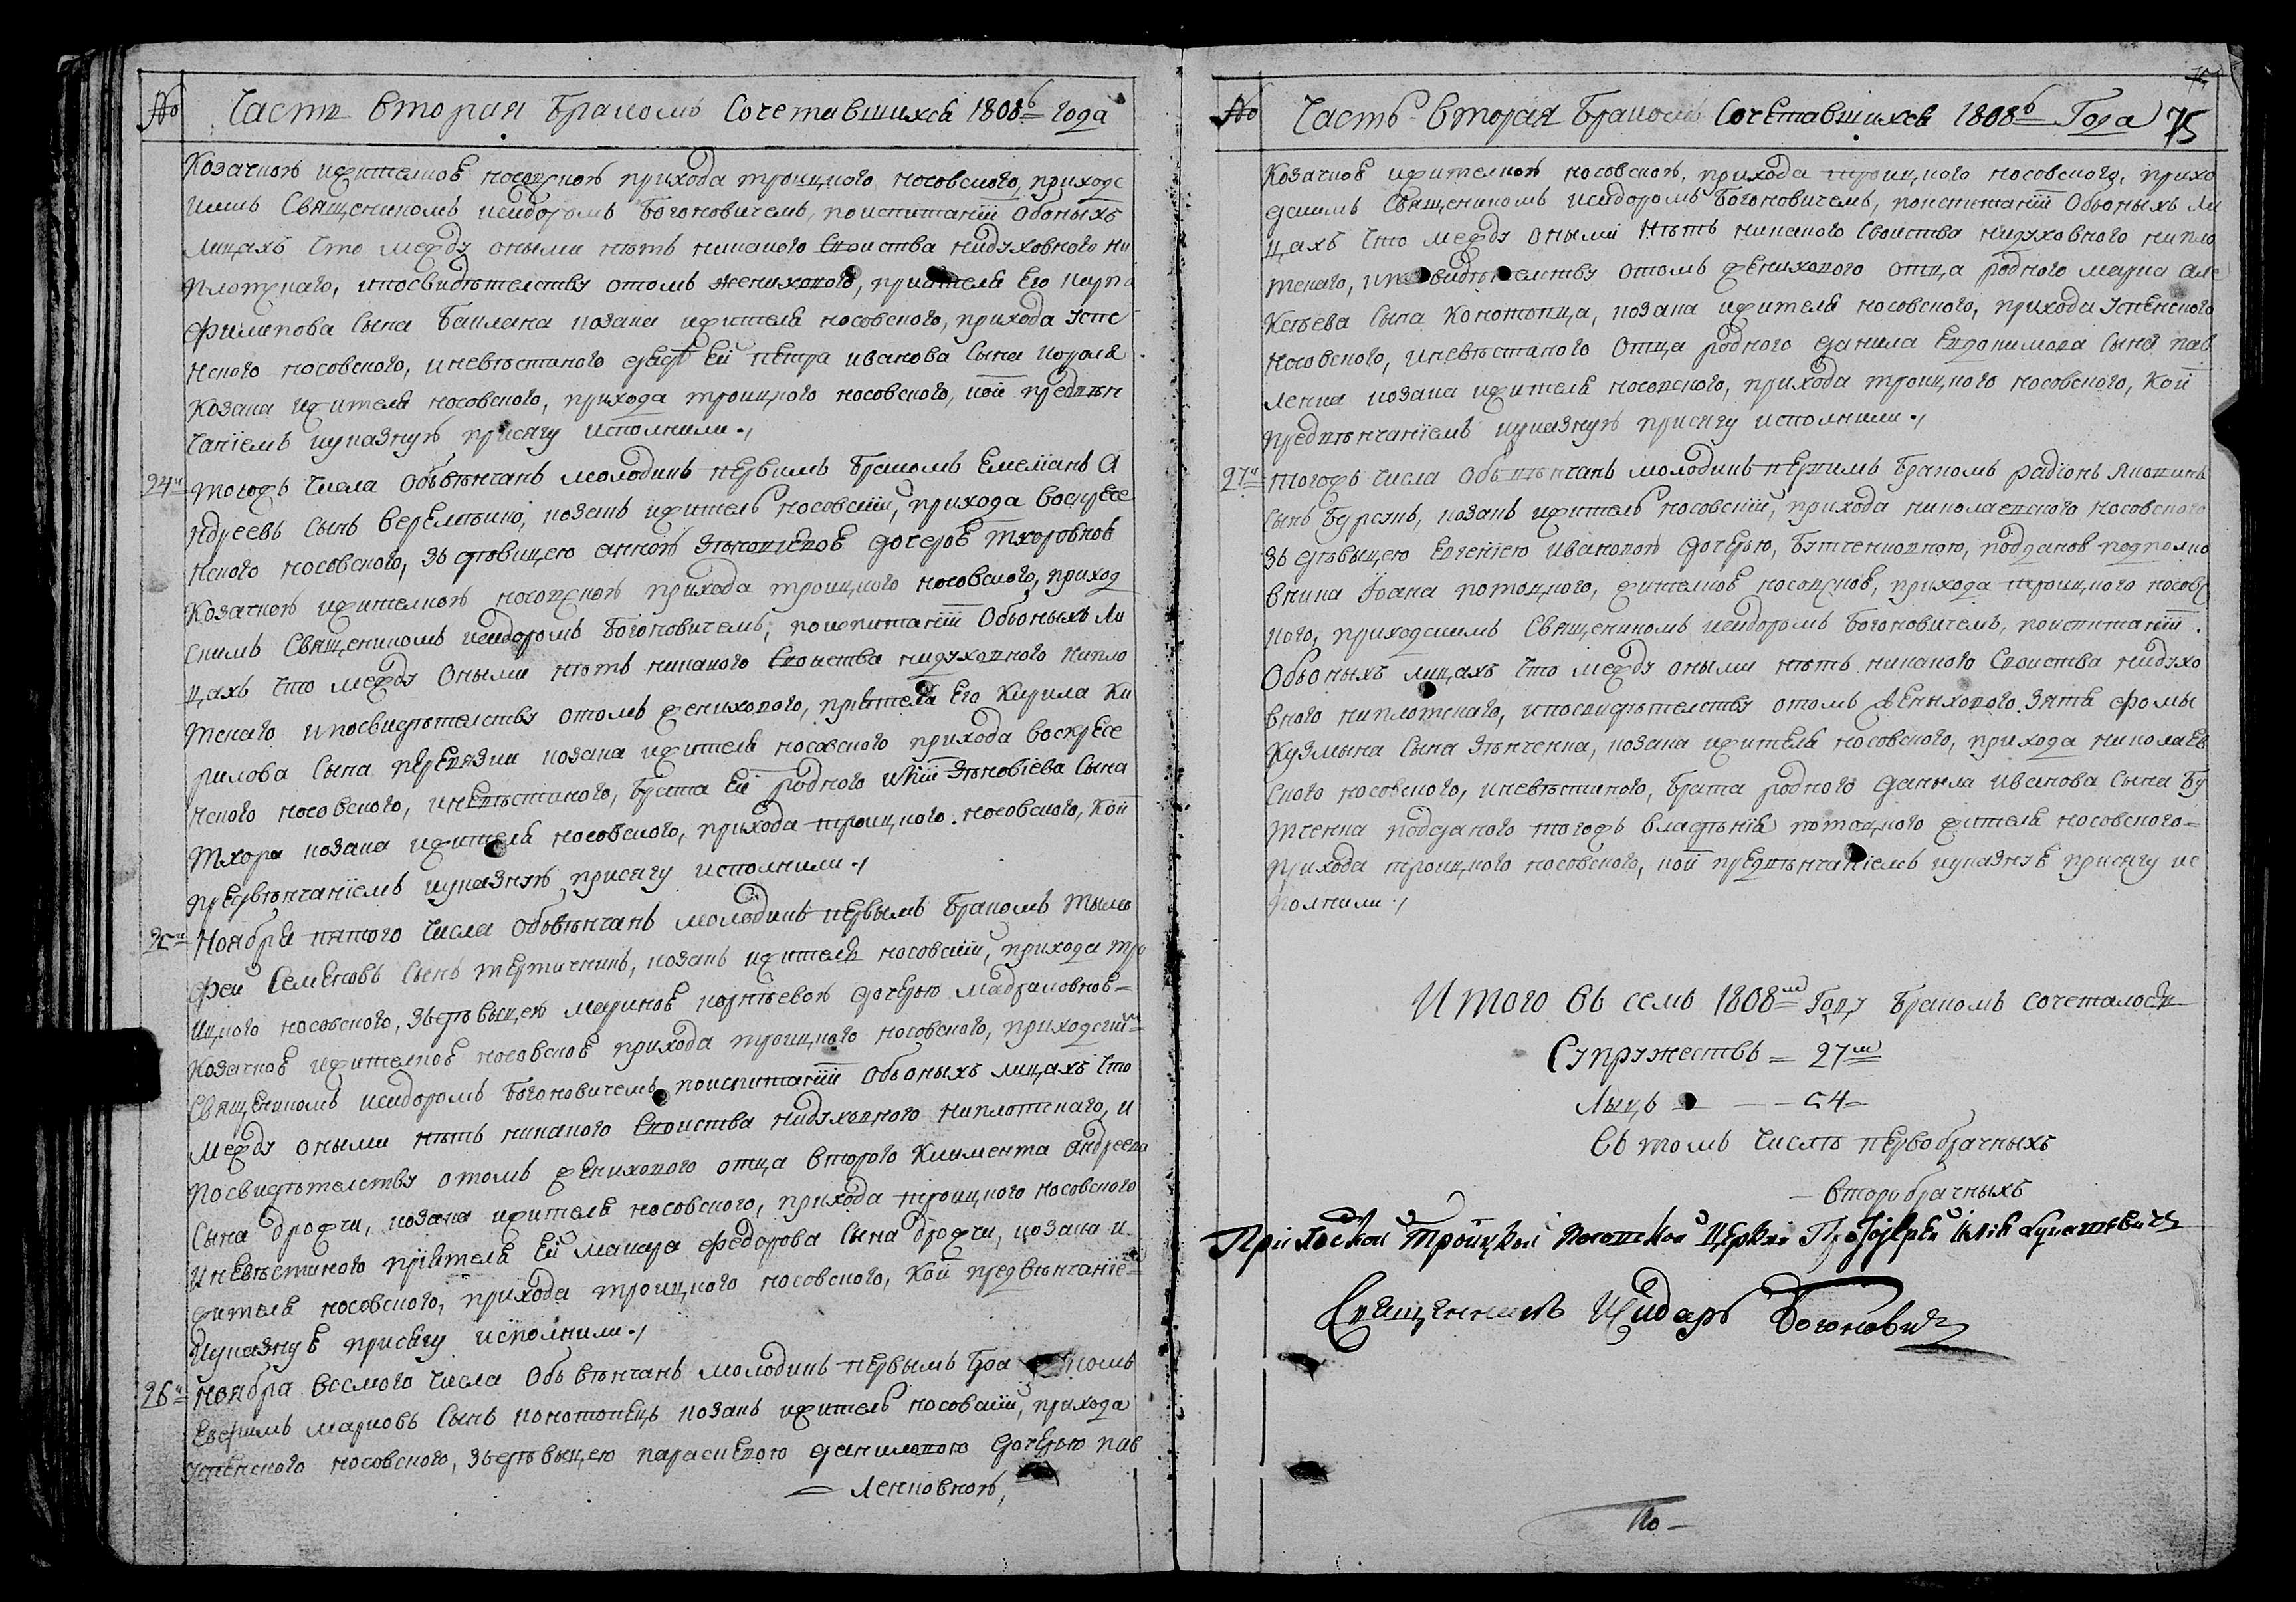 № Часть вторая Бракомъ Сочетавшихся 1808ъ года
Козачкою ижителкою носовскою прихода троицкого носовского, приходс
кимъ Священикомъ исидоромъ Богоновичемъ, поиспитаніи Обоныхъ
лицахъ Что между оными нѣтъ никакого Своиства нидуховного ни
плотскаго, ипосвидѣтелству отомъ женихового, приятеля Его
Филипова Сына Баклана козака ижителя носовского, прихода успе
нского носовского, иневѣстиного дяди Ей петра иванова Сына Короля
Козака ижителя носовского, прихода троицкого носовского, кои предвѣн
чаніемъ иуказную присягу исполнили./
24й Тогожъ Числа Объвѣнчанъ молодикъ первимъ Бракомъ Емеліанъ А
ндреевъ Сынъ Веремѣико, козакъ ижитель носовскіи, прихода воскресе
нского носовского, зъ дѣвицею анною Зѣновіевою дочерою Тхоровною
Козачкою ижителкою носовскою прихода троицкого носовского, приход
скимъ Священикомъ исидоромъ Богоновичемъ, поиспитаніи Объоныхъ ли
цахъ Что между Оными нѣтъ никакого Своиства нидуховного нипло
тскаго ипосвидѣтелству отомъ женихового, приятеля Его Кирила Ки
рилова Сына перевязки козака ижителя носовского прихода воскресе
нского носовского, иневѣстиного, брата Ей родного Зѣновіева Сына
Тхора козака ижителя носовского, прихода троицкого носовского, кои
предвѣнчаніемъ иуказную присягу исполнили./
25й Ноября пятого Числа Объвѣнчанъ молодикъ первымъ Бракомъ Тымо
фей Семеновъ Сынъ тертичникъ, козакъ ижитель носовскіи, прихода тро
ицкого носовского, зъдѣвицею мариною корнѣевою дочерью
Козачкою ижителкою носовскою прихода троицкого носовского, приходскимъ
Священикомъ исидоромъ Богоновичемъ, поиспитаніи Объоныхъ лицахъ Что
между оными нѣтъ никакого Своиства нидуховного ниплотскаго, и
посвидѣтелству отомъ женихового отца второго Климента андреева
Сына дрофи, козака ижителя носовского, прихода троицкого носовского
Иневѣстиного приятеля Ей федорова Сына дрофи, козака и
жителя носовского, прихода троицкого носовского, кои предвѣнчаніемъ
Иуказную присягу исполнили./
26й Ноября восмого Числа Объвѣнчанъ молодикъ первымъ Бракомъ
Евфимъ марковъ Сынъ конотопецъ козакъ ижитель носовскіи, прихода
успенского носовского, зъдѣвицею параскевою даниловою дочерью пав
ленковною,
№ Часть вторая Бракомъ Сочетавшихся 1808ъ Года 75
Козачкою ижителкою носовскою, прихода троицкого носовского, прихо
дскимъ Священикомъ исидоромъ Богоновичемъ, поиспитаніи Объоныхъ ли
цахъ Что между оными нѣтъ никакого Своиства нидуховного нипло
тскаго, ипосвидѣтелству отомъ женихового отца родного марка але
ксѣева Сына Конотопца, козака ижителя носовского, прихода успенского
носовского, иневѣстиного Отца родного данила Евдокимова Сына пав
ленка козака ижителя носовского, прихода троицкого носовского, кои
предвѣнчаніемъ иуказную присягу исполнили./
27й Тогожъ числа Объвѣнчанъ молодикъ первимъ Бракомъ радіонъ
Сынъ Бурсакъ, козакъ ижитель носовскіи, прихода николаевского носовского
зъ дѣвицею Евгеніею Ивановою дочерью, Бутченковною, подданою подполко
вника Іоана потоцкого, жителкою носовскою, прихода троицкого носовс
кого, приходскимъ Священикомъ исидоромъ Богоновичемъ, поиспитаніи
Объоныхъ лицахъ Что между оными нѣтъ никакого Своиства нидухо
вного ниплотскаго, ипосвидѣтелству отомъ женыхового зятя фомы
Кузмына Сына Зѣнченка, козака ижителя носовского, прихода николаев
ского носовского, иневѣстиного, Брата родного данила Иванова Сына Бу
тченка подданого тогожъ владѣнія потоцкого жителя носовского
Прихода троицкого носовского, кои предвѣнчаніемъ иуказную присягу ис
полнили./
Итого Въ семъ 1808мъ Году Бракомъ сочеталось
Супружествъ = 27мъ
Лыцъ — — 54
Въ томъ Числѣ первобрачныхъ
— второбрачныхъ
Приходской Троицкой Носовской Церкви Протоіерей
Священникъ Исидоръ Богоновичъ
По —